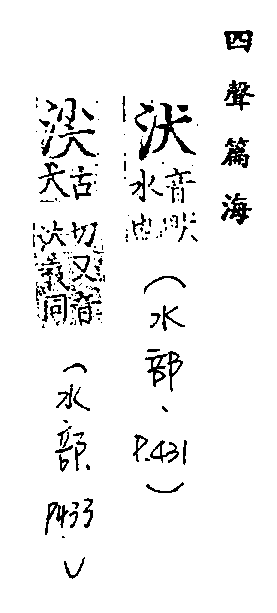 四聲篇海
汱 音畎水也 (水部、P.431)
古犬切又音汱義同 (水部、P433.)